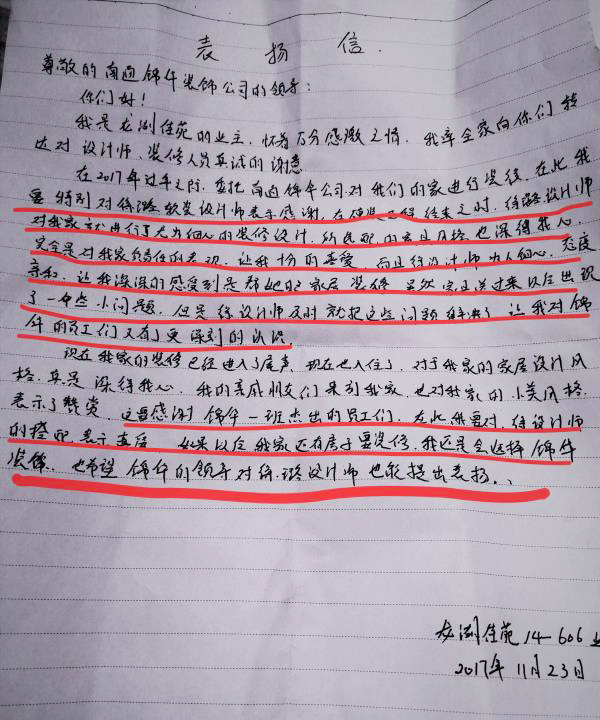 表扬信.
尊敬的南通锦华装饰公司的领导:
你们好!
我是龙湖佳苑的业主, 怀着万分感激之情, 我率全家向你们转
达对设计师、装修人员真诚的谢意
在2017年过年之际, 委托南通锦华公司对我们的家进行装修, 在此我
要特别对徐璐软装设计师表示感谢, 在硬装已经结束之时, 徐璐设计师
对我家就进行了尤为细心的装修设计, 所选配的家具风格也深得我心,
完全是对我家负责任的表现, 让我十分的喜爱, 而且徐设计师为人细心, 态度
亲和, 让我深深的感受到是帮她自己家居装修 虽然家具送过来以后出现
了一些小问题, 但是徐设计师及时就把这些问题解决了 让我对锦
华的员工们又有了更深刻的认识.
现在我家的装修已经进入了尾声, 现在也入住了, 对于我家的家居设计风
格, 真是深得我心, 我的亲戚朋友们来到我家, 也对我家的小美风格
表示了赞赏, 这要感谢锦华一班杰出的员工们, 在此我要对徐设计师
的搭配表示 如果以后我家还有房子要装修, 我还是会选择锦华
装饰. 也希望锦华的领导对徐璐设计师也能提出表扬.
龙湖佳苑14-606业
2017年11月23日